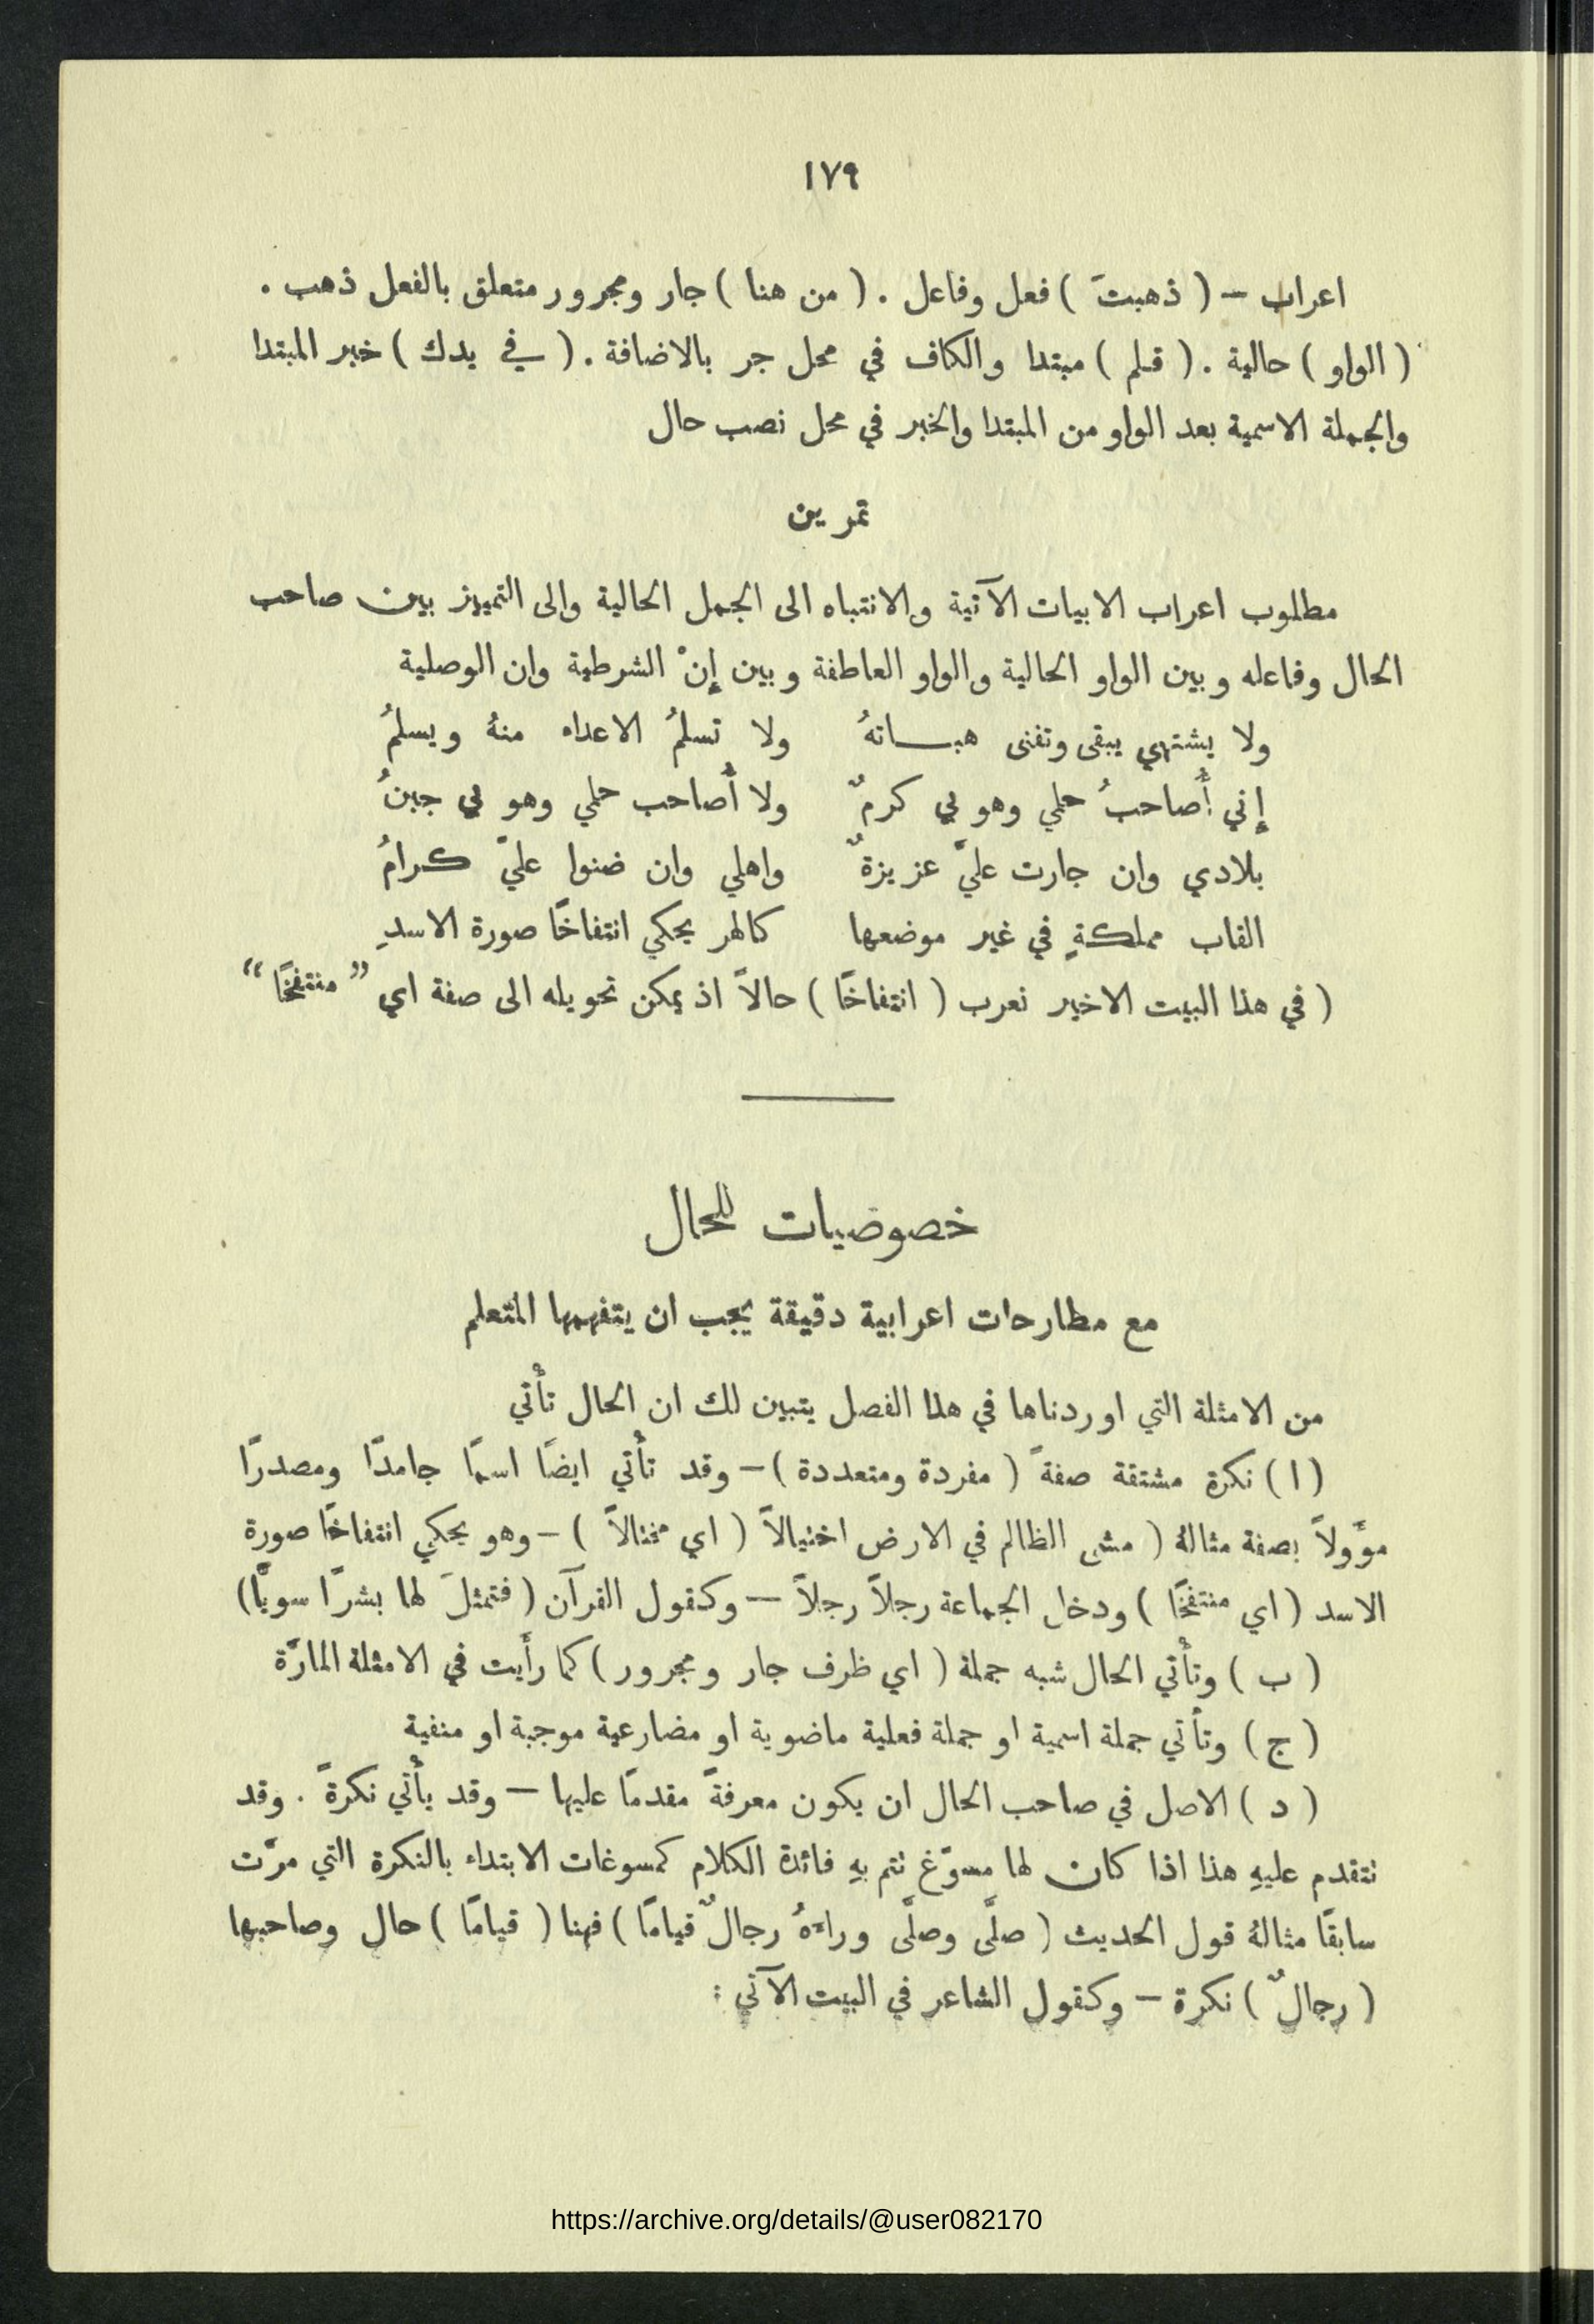 ١٧٩
اعراب – ( ذهبتَ ) فعل وفاعل . ( من هنا ) جار ومجرور متعلق بالفعل ذهب .
( الواو ) حالية . ( قلم ) مبتدا والكاف في محل جر بالاضافة . ( في يدك ) خبر المبتدا
والجملة الاسمية بعد الواو من المبتدا والخبر في محل نصب حال
تمرين
مطلوب اعراب الابيات الآتية والانتباه الى الجمل الحالية والى التمييز بين صاحب
الحال وفاعله وبين الواو الحالية والواو العاطفة وبين إنْ الشرطية وان الوصلية
ولا يشتهي يبقى وتفنى هبـاتهُ ولا تسلمُ الاعداء منهُ ويسلمُ
إني أُصاحبُ حلمي وهو بي كرمٌ ولا أُصاحب حلمي وهو بي جبنُ
بلادي وان جارت عليَّ عزيزةٌ واهلي وان ضنوا عليّ كرامُ
القاب مملكةٍ في غير موضعها كالهر يحكي انتفاخًا صورة الاسدِ
( في هذا البيت الاخير نعرب ( انتفاخًا ) حالاً اذ يمكن تحويله الى صفة اي ” منتفخًا “
خصوصيات للحال
مع مطارحات اعرابية دقيقة يجب ان يتفهمها المتعلم
من الامثلة التي اوردناها في هذا الفصل يتبين لك ان الحال تأتي
( ا ) نكرة مشتقة صفةً ( مفردة ومتعددة ) – وقد تأتي ايضًا اسمًا جامدًا ومصدرًا
مؤَولاً بصفة مثالهُ ( مشى الظالم في الارض اختيالاً ( اي مختالاً ) – وهو يحكي انتفاخًا صورة
الاسد ( اي منتفخًا ) ودخل الجماعة رجلاً رجلاً – وكقول القرآن ( فتمثلَ لها بشرًا سويًّا )
( ب ) وتأتي الحال شبه جملة ( اي ظرف جار ومجرور ) كما رأَيت في الامثلة المارَّة
( ج ) وتأتي جملة اسمية او جملة فعلية ماضوية او مضارعية موجبة او منفية
( د ) الاصل في صاحب الحال ان يكون معرفةً مقدمًا عليها – وقد يأتي نكرةً . وقد
تتقدم عليهِ هذا اذا كان لها مسوّغ تتم بهِ فائدة الكلام كمسوغات الابتداء بالنكرة التي مرَّت
سابقًا مثالهُ قول الحديث ( صلَّى وصلَّى وراءَهُ رجالٌ قيامًا ) فهنا ( قيامًا ) حال وصاحبها
( رجالٌ ) نكرة – وكقول الشاعر في البيت الآتي :
https://archive.org/details/@user082170